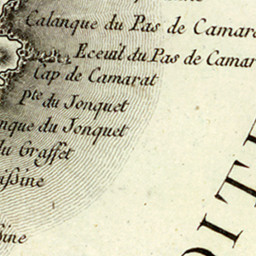 Calanque du Pas de Camara
Eceuil du Pas de Camar
Cap de Camarat
Pte du Jonquet
nque du Jonquet
du Graffet
ißine
ßine
OIT